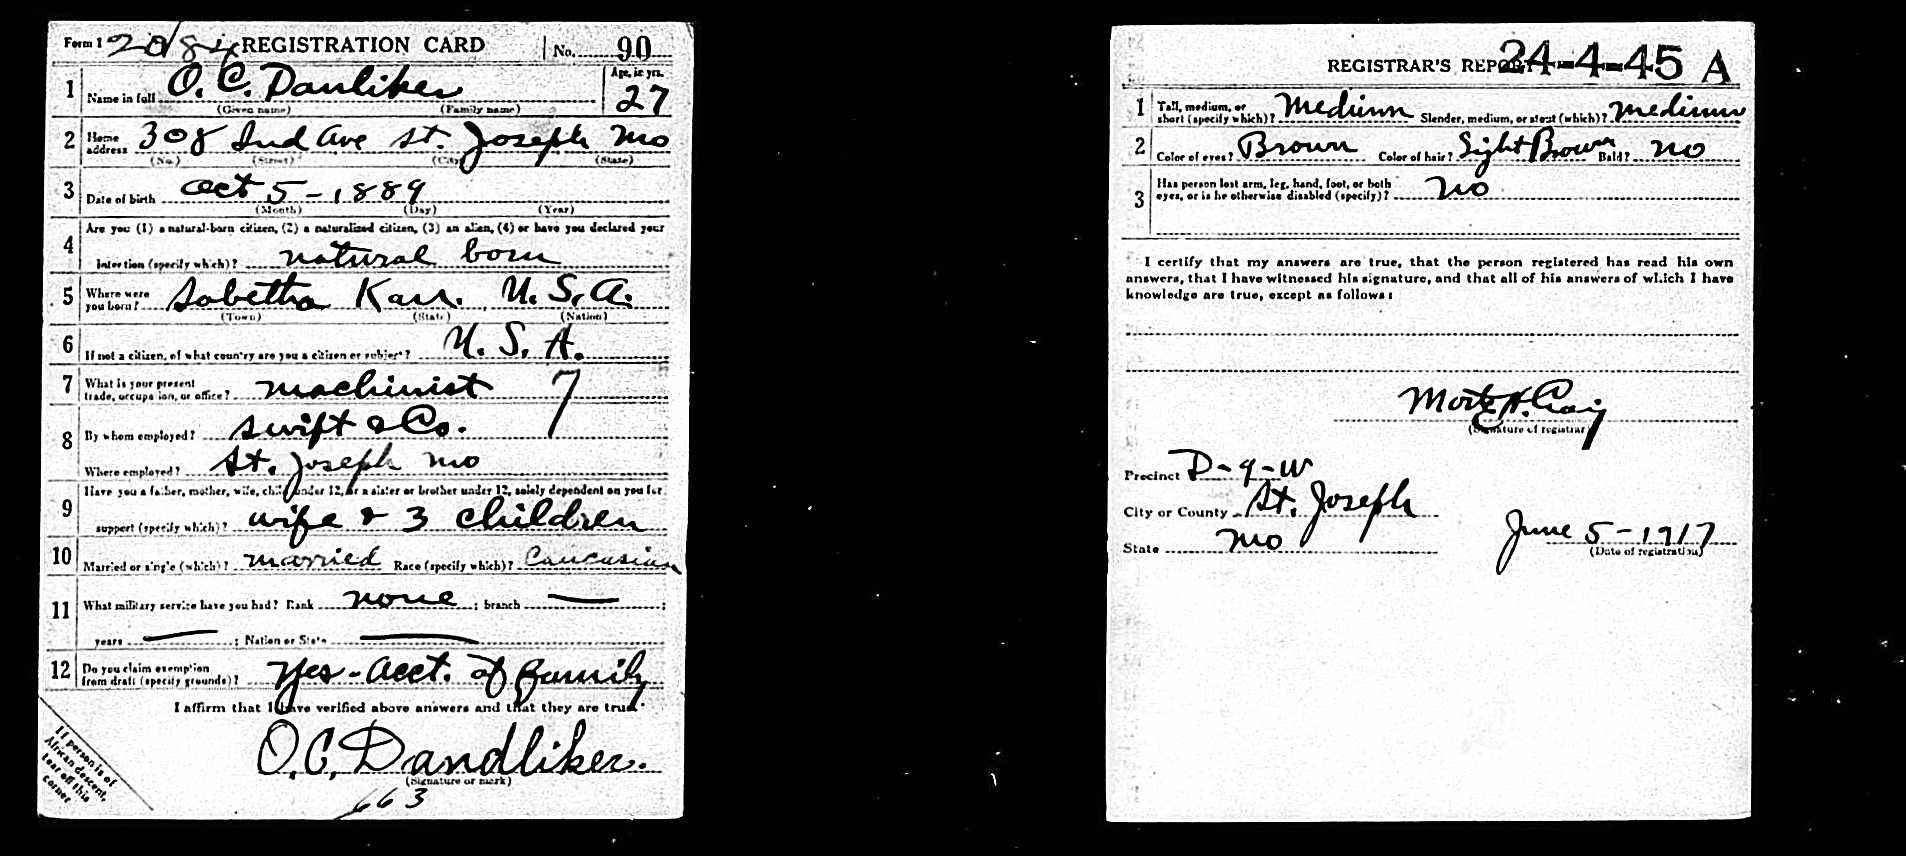 Form 1 20/84 REGISTRATION CARD No. 90
1 Name in full O. C. Danliker Age, in yrs. 27
(Given name) (Family name)
2 Home address 308 Ind Ave St. Joseph Mo
(No.) (Street) (City) (State)
3 Date of birth Oct 5 - 1889
(Month) (Day) (Year)
4 Are you (1) a natural-born citizen, (2) a naturalized citizen, (3) an alien, (4) or have you declared your
intention (specify which)? natural born
5 Where were you born? Sabetha Kan. U. S. A.
(Town) (State) (Nation)
6 If not a citizen, of what country are you a citizen or subject? U. S. A.
7 What is your present trade, occupation, or office? machinist 7
8 By whom employed? Swift & Co.
Where employed? St. Joseph Mo
9 Have you a father, mother, wife, child under 12, or a sister or brother under 12, solely dependent on you for
support (specify which)? wife & 3 children
10 Married or single (which)? married Race (specify which)? Caucasian
11 What military service have you had? Rank none ; branch — ;
years — ; Nation or State —
12 Do you claim exemption from draft (specify grounds)? Yes - acct. of family
I affirm that I have verified above answers and that they are true.
O. C. Dandliker.
(Signature or mark)
663
If person is of
African descent,
tear off this
corner
REGISTRAR'S REPORT 24-4-45 A
1 Tall, medium, or short (specify which)? Medium Slender, medium, or stout (which)? medium
2 Color of eyes? Brown Color of hair? Light Brown Bald? no
3 Has person lost arm, leg, hand, foot, or both
eyes, or is he otherwise disabled (specify)? no
I certify that my answers are true, that the person registered has read his own
answers, that I have witnessed his signature, and that all of his answers of which I have
knowledge are true, except as follows:
H. Craig
(Signature of registrar)
Precinct D-9-W
City or County St. Joseph
State Mo June 5 - 1917
(Date of registration)